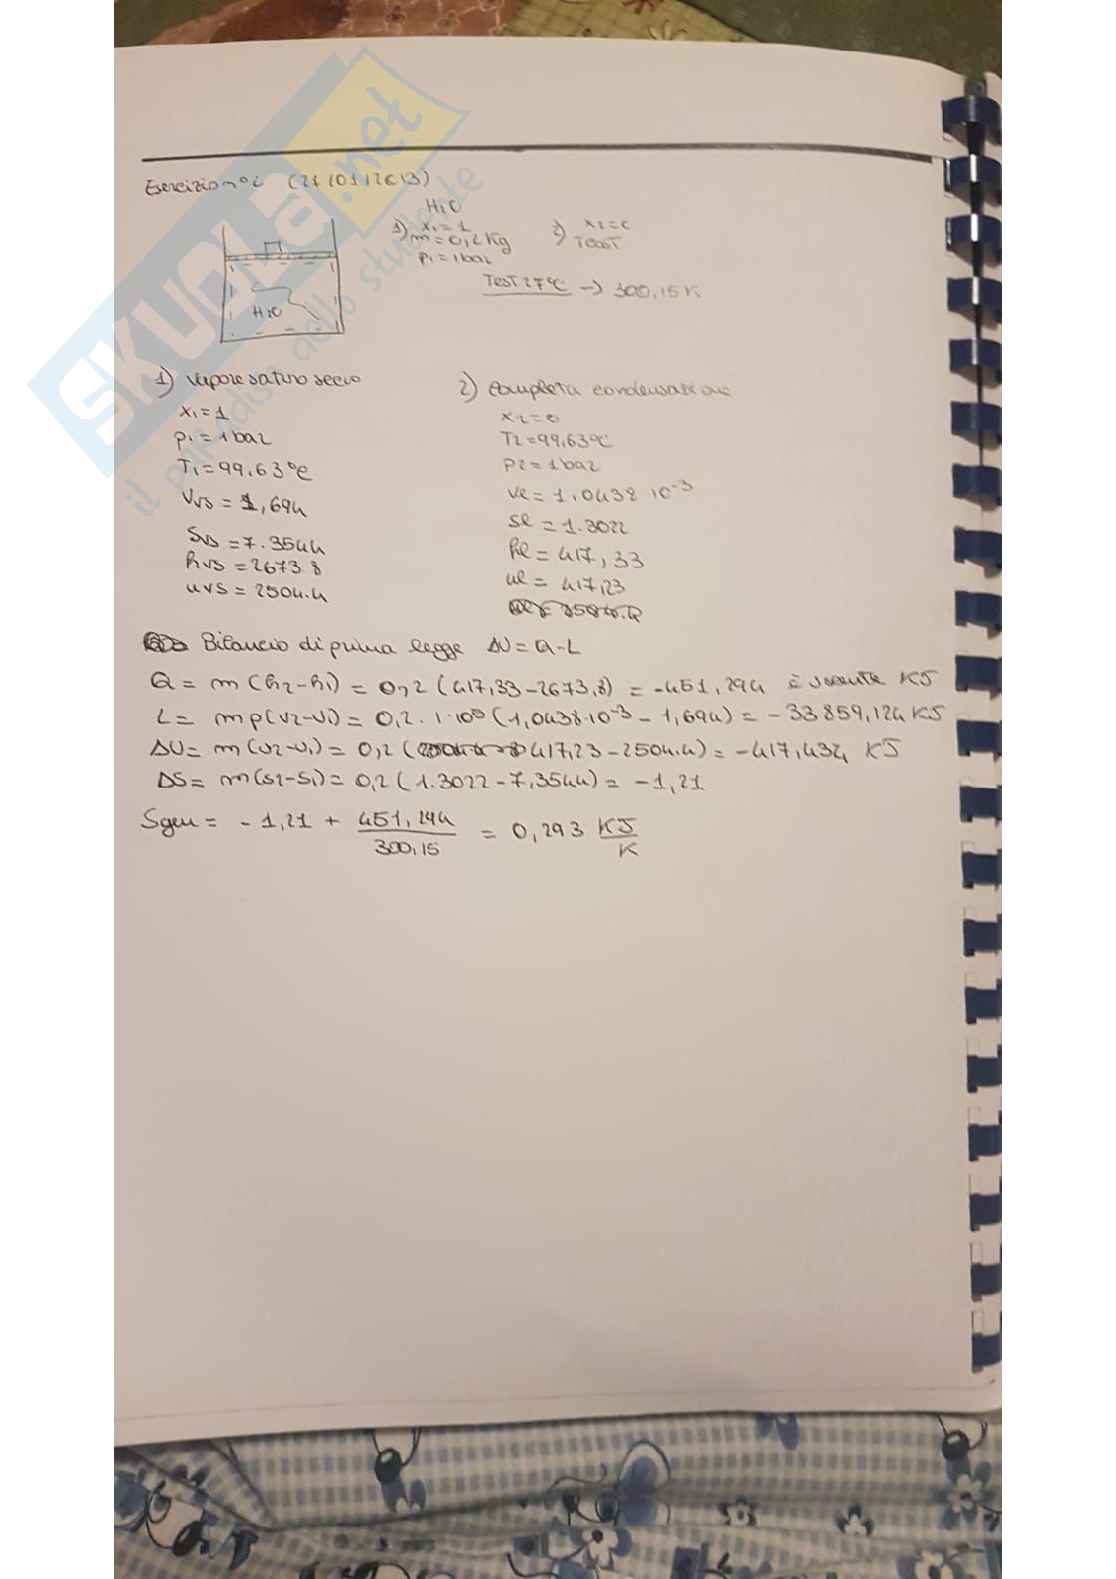 SKUOLA.net
il paradiso dello studente
Esercizio n°2 (21/01/2013)
H2O
1) x1=1
m=0,2 Kg
p1=1baz
2) x2=0
TCOST
Test 27°C → 300,15 K
H2O
1) vapore saturo secco
x1=1
p1=1baz
T1=99,63°C
Vvs=1,694
Svs=7.3544
hvs=2673.8
uvs=2504.4
2) completa condensazione
x2=0
T2=99,63°C
P2=1baz
ve=1.0438·10⁻³
se=1.3022
he=417,33
ue=417,23
Bilancio di prima legge ΔU=Q-L
Q= m(h2-h1)=0,2(417,33-2673,8)=-451,294 è uscente KJ
L= mp(v2-v1)=0,2·1·10⁵(1,0438·10⁻³-1,694)=-33859,124 KJ
ΔU= m(u2-u1)=0,2(417,23-2504.4)=-417,434 KJ
ΔS= m(s2-s1)=0,2(1.3022-7,3544)=-1,21
Sgen= -1,21 + 451,294/300,15 = 0,293 KJ/K